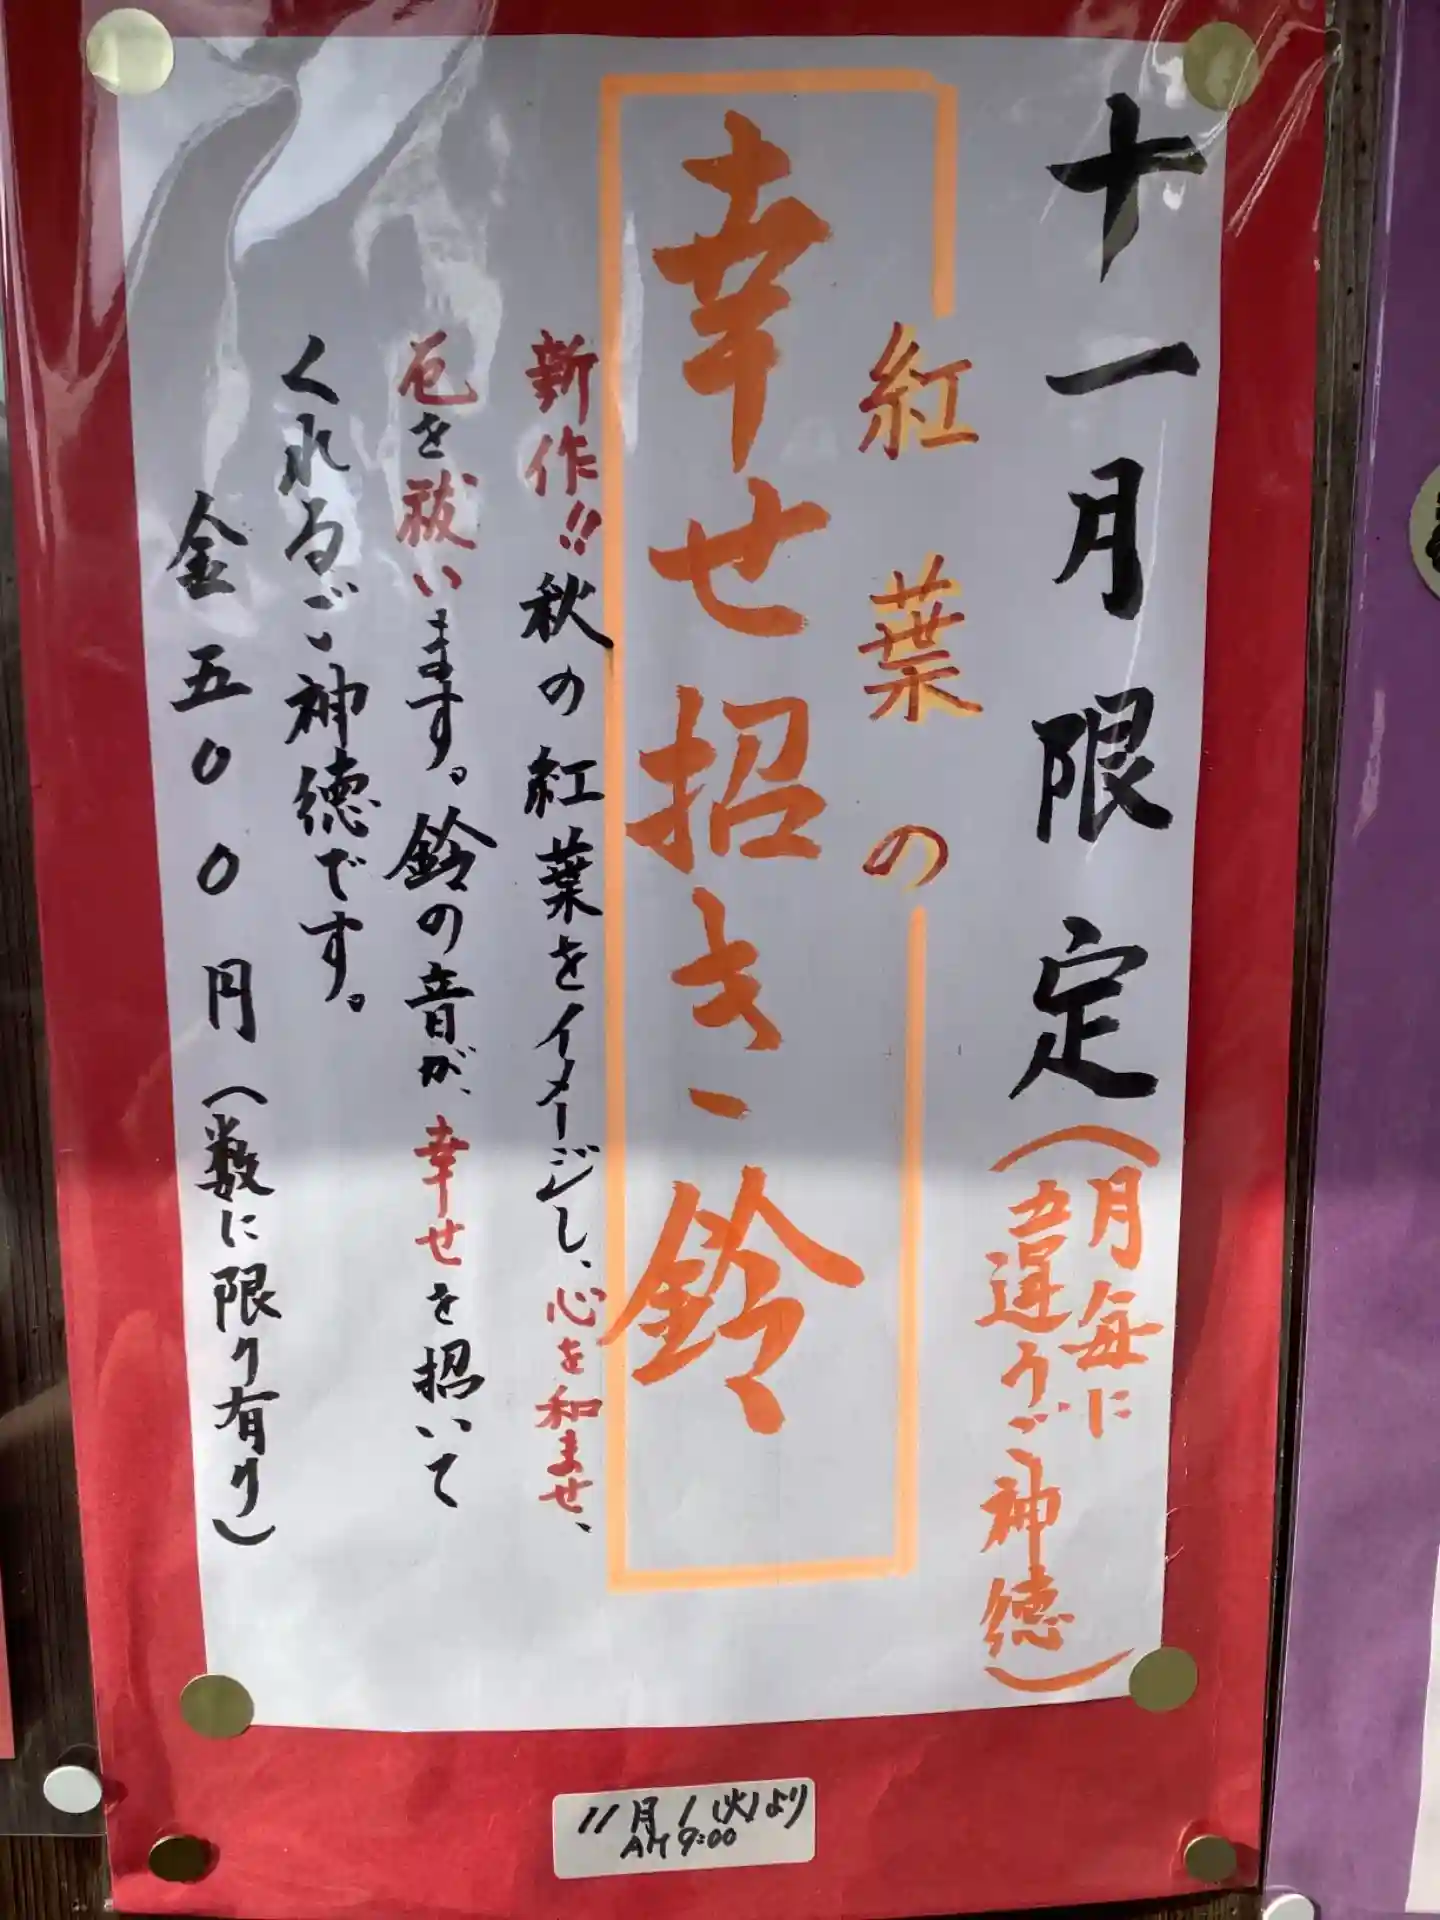 十一月限定（月毎に
五違うご神徳）
紅葉の
幸せ招き鈴
新作!!秋の紅葉をイメージし、心を和ませ、
厄を祓います。鈴の音が、幸せを招いて
くれるご神徳です。
金五00円（数に限り有り）
11月1(火)より
AM9:00